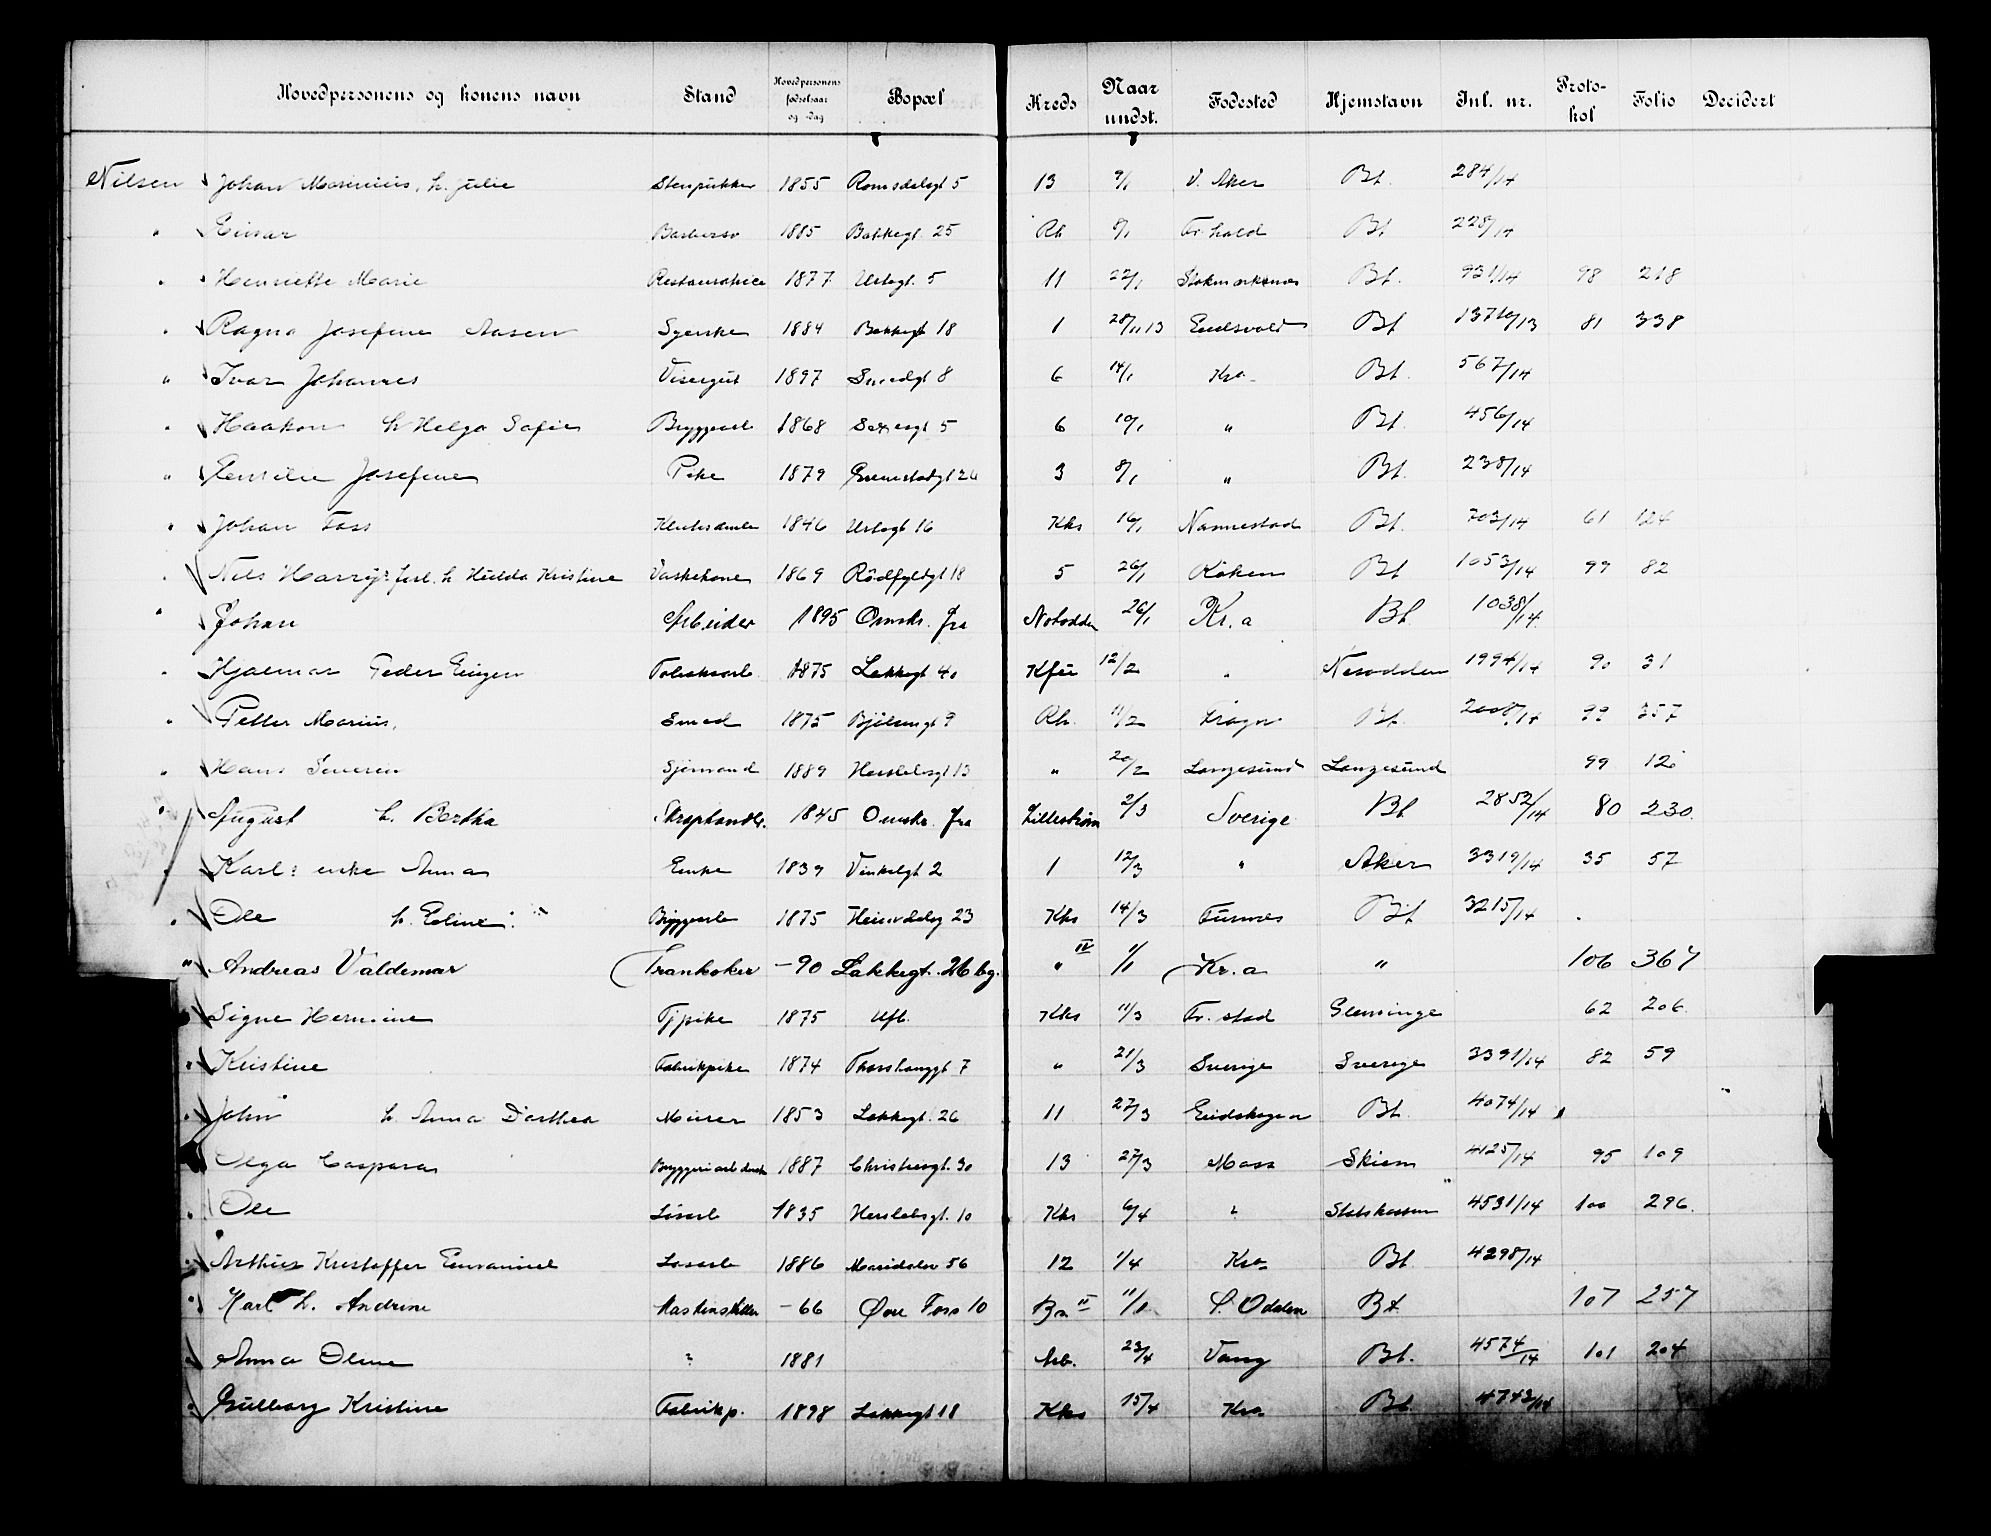 Hovedpersonens og konens navn Stand Hovedpersonens fødselsaar og -dag Bopæl Kreds Naar undst. Fødested Hjemstavn Inl. nr. Proto-kol Folio Decidert
Nilsen Johan Marinius, h. Julie Stenpukker 1855 Romsdalsgt 5 13 9/1 V. Aker Bt. 284/14
" Einar Barbersv 1885 Bakkegt. 25 Rh 8/1 Fr.hald Bt 228/14
" Henriette Marie Restauratrice 1877 Urtegt. 5 11 22/1 Stokmarknes Bt. 921/14 98 218
" Ragna Josefine Aasen Syerske 1884 Bakkegt 18 1 28/11 13 Eidsvold Bt 13710/13 81 338
" Ivar Johannes Visergut 1897 Smedgt 8 6 14/1 Kra Bt. 567/14
" Haakon h Helga Sofie Bryggearb 1868 5 6 10/1 " Bt. 456/14
" Emilie Josefine Pike 1879 Grimstadgt 26 3 8/1 " Bt. 238/14
" Johan Foss Kludesamler 1846 Urtegt 16 Kks 16/1 Nannestad Bt. 703/14 61 124
" Nils Harry: h Hulda Kristine Vaskekone 1869 Rödfyldgt 18 5 26/1 Röken Bt 1053/14 99 82
" Johan Arbeider 1895 Omsk. fra Notodden 26/1 Kr.a Bt. 1038/14
" Hjalmar Peder Eugen Fabrikarb. 1875 Lakkegt 40 Kfei 12/2 " Nesodden 1994/14 90 31
" Petter Marius, Smed 1875 Bjölsengt 9 Rh. 11/2 Kragerø Bt. 2008/14 99 357
" Hans Severin Sjömand 1889 Herslebsgt 13 " 20/2 Langesund Langesund 99 12
" August h. Bertha Skraphandlr. 1845 Omsk. fra Lillestrøm 2/3 Sverige Bt 2852/14 80 230.
" Karl: enke Anna Enke 1839 Vinkelgt 2 1 12/3 " Aker 3319/14 35 57
" Ole h. Eline: Bryggearb 1875 Heimdalsg 23 Kks 14/3 Furnes Bt 3215/14
" Andreas Valdemar Trankoker -90 Lakkegt. 26 bg. " IV 1/1 Kr.a " 106 367
" Signe Hermine Tjpike 1875 Ufl. Kks 11/3 Fr.stad Glemminge 62 206
" Kristine Fabrikpike 1874 Thorshauggt 7 " 21/3 Sverige Sverige 3391/14 82 59
" John h. Anna Dorthea Murer 1853 Lakkegt. 26 11 27/3 Eidskogen Bt. 4074/14
" Olga Caspara Bryggeriarbeiderske 1887 Christiesgt. 30 13 27/3 Moss Skien 4125/14 95 109
" Ole Løsarb 1835 Herslebsgt. 10 Kks 6/4 ? Statskassen 4531/14 100 296.
" Arthur Kristoffer Emanuel Løsarb 1886 Maridalsv 56 12 1/4 Kra Bt. 4298/14
" Karl h. Andrine Maskinstiller -66 Øvre Foss 10 Bra II 11/1 S. Odalen Bt. 107 257
" Anna Oline ? 1881 Arb. 23/4 Vang Bt. 4574/14 101 204
" Gulborg Kristine Fabrikp. 1898 Lakkegt 18 Kks 15/4 Kra Bt 4743/14